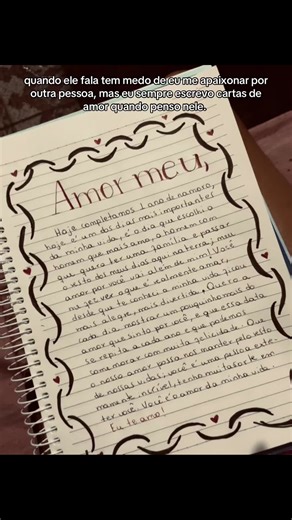 quando ele fala tem medo de eu me apaixonar por
outra pessoa, mas eu sempre escrevo cartas de
amor quando penso nele.
Amor meu,
Hoje completamos 1 ano de namoro,
hoje é um dos dias mais importantes
da minha vida, é o dia que escolhi o
homem que mais amo, o homem com
que quero ter uma família e passar
o resto dos meus dias aqui na terra, meu
amor por você vai além de mim! Você
me fez ver o que é realmente amar,
desde que te conheci a minha vida ficou
mais alegre, mais divertida. Quero a
cada dia mostrar um pouquinho mais do
amor que sinto por você, e que essa data
se repita a cada ano e que podemos
comemorar com muita felicidade. Que
o nosso amor possa nos manter pelo resto
de nossas vidas, você é uma pessoa extre-
mamente incrível, tenho muita sorte em
ter você. Você é o amor da minha vida.
Eu te amo!